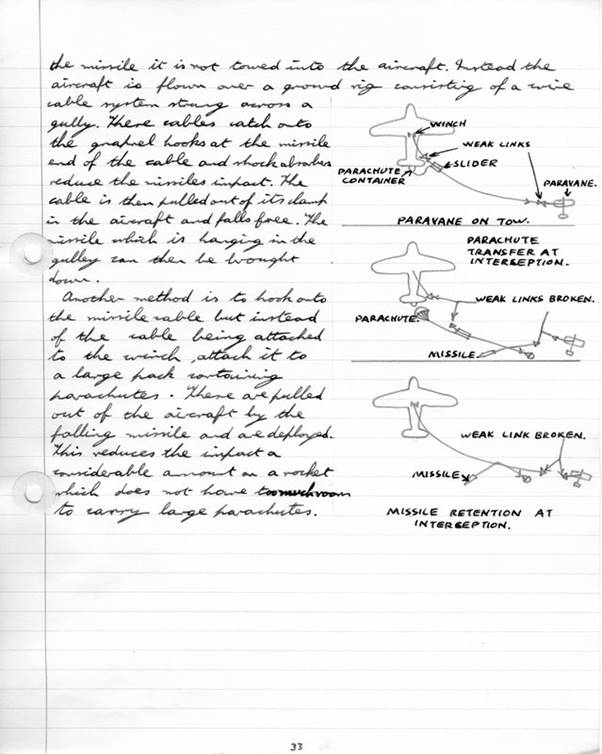 the missile it is not towed into the aircraft. Instead the
aircraft is flown over a ground rig consisting of a wire
cable system strung across a
gully. These cables catch onto
the grapnel hooks at the missile
end of the cable and shock absorbers
reduce the missiles impact. The
cable is then pulled out of its clamp
in the aircraft and falls free. The
missile which is hanging in the
gulley can then be brought
down.
Another method is to hook onto
the missile cable but instead
of the cable being attached
to the winch, attach it to
a large pack containing
parachutes. These are pulled
out of the aircraft by the
falling missile and are deployed.
This reduces the impact a
considerable amount on a rocket
which does not have too much room
to carry large parachutes.
WINCH
WEAK LINKS
SLIDER
PARACHUTE
CONTAINER
PARAVANE.
PARAVANE ON TOW.
PARACHUTE
TRANSFER AT
INTERSEPTION.
WEAK LINKS BROKEN.
PARACHUTE.
MISSILE
WEAK LINK BROKEN.
MISSILE
MISSILE RETENTION AT
INTERSEPTION.
33